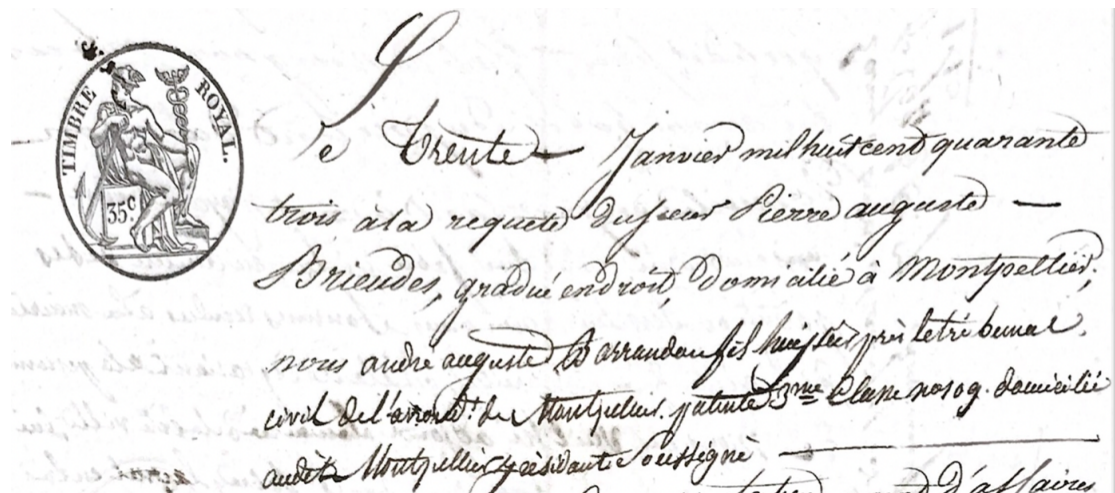 TIMBRE ROYAL.
35c
Le trente Janvier mil huit cent quarante
trois à la requete du sieur Pierre auguste
Brieudes, gradué en droit, domicilié à Montpellier,
nous andré auguste fils huissier près le tribunal
civil de l'arrondt. de Montpellier patenté 3me Classe no 509. domicilié
audit Montpellier y résidant Soussigné
d'affaires